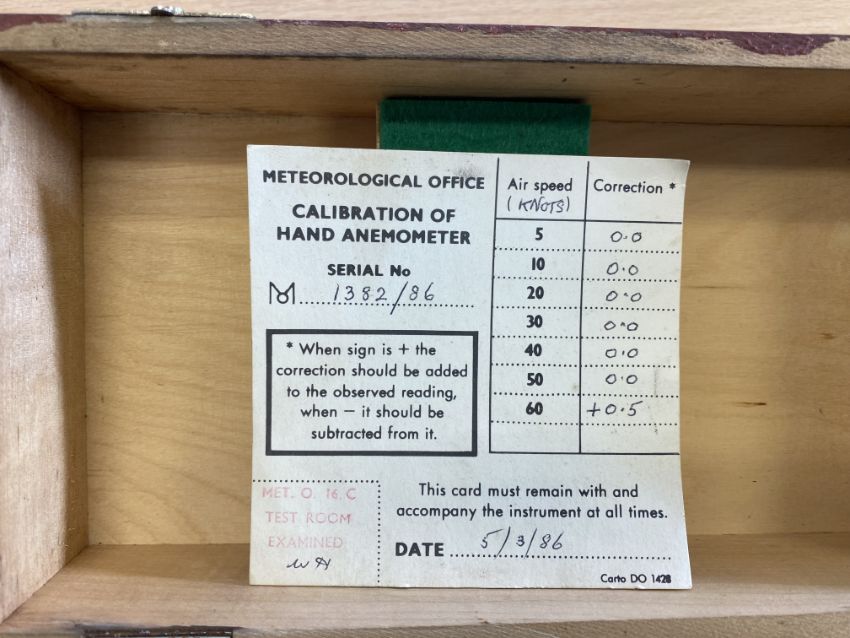 METEOROLOGICAL OFFICE
CALIBRATION OF
HAND ANEMOMETER
SERIAL No
M 1382/86
* When sign is + the
correction should be added
to the observed reading,
when — it should be
subtracted from it.
Air speed Correction *
(KNOTS)
5 0.0
10 0.0
20 0.0
30 0.0
40 0.0
50 0.0
60 +0.5
MET. O. 16. C
TEST ROOM
EXAMINED
This card must remain with and
accompany the instrument at all times.
DATE 5/3/86
Carto DO 1428